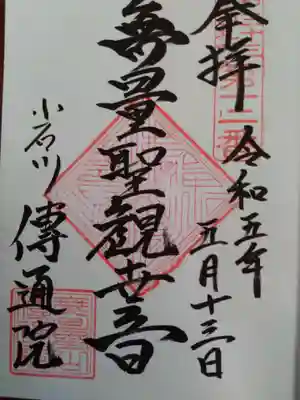 奉拝
令和五年
五月十三日
無量聖観世音
小石川
傳通院